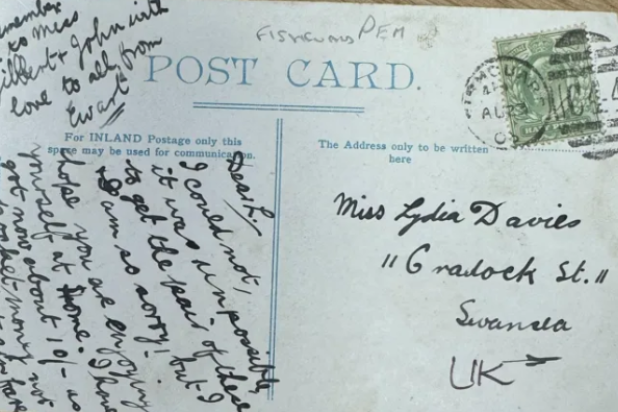 remember
to miss
Gilbert & John with
love to all from
Ewart
FISHGUARD PEM
POST CARD.
For INLAND Postage only this
space may be used for communication.
The Address only to be written
here
FISHGUARD
AU
Dear L,
I could not,
it was unpossible,
to get the pair of these
I am so sorry! but I
hope you are enjoying
yourself at home. I have
got now about 10/- as
pocket money
Miss Lydia Davies
"Cradock St."
Swansea
UK